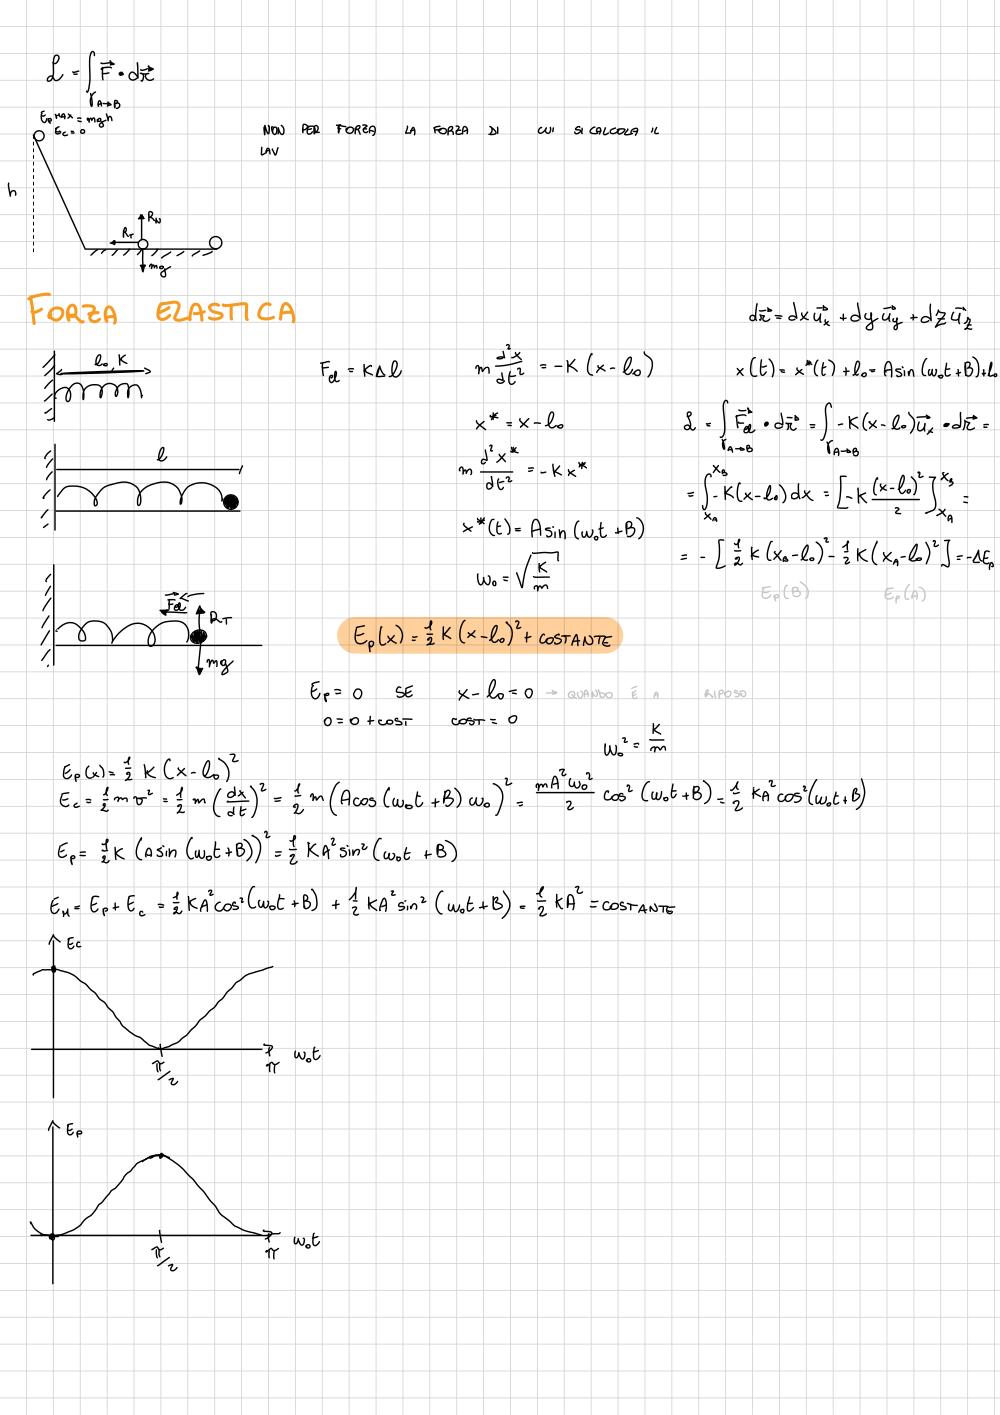 ℒ = ∫_{γ A→B} F⃗ • dr⃗
E_P^{MAX} = mgh
E_C = 0
NON PER FORZA LA FORZA DI CUI SI CALCOLA IL
LAV
h
R_N
R_T
mg
FORZA ELASTICA
dr⃗ = dx u⃗_x + dy u⃗_y + dz u⃗_z
l₀, K
F_el = KΔl
m d²x/dt² = -K (x - l₀)
x(t) = x*(t) + l₀ = A sin (ω₀t + B) + l₀
x* = x - l₀
ℒ = ∫_{γ A→B} F⃗_el • dr⃗ = ∫_{γ A→B} -K(x - l₀) u⃗_x • dr⃗ =
l
m d²x*/dt² = -K x*
= ∫_{x_A}^{x_B} -K(x - l₀) dx = [-K (x - l₀)²/2]_{x_A}^{x_B} =
x*(t) = A sin (ω₀t + B)
= - [ ½ K (x_B - l₀)² - ½ K (x_A - l₀)² ] = -ΔE_P
ω₀ = √(K/m)
E_P(B) E_P(A)
F⃗_el
R_T
mg
E_P(x) = ½ K (x - l₀)² + COSTANTE
E_P = 0 SE x - l₀ = 0 → QUANDO È A RIPOSO
0 = 0 + COST COST = 0
ω₀² = K/m
E_P(x) = ½ K (x - l₀)²
E_C = ½ m v² = ½ m (dx/dt)² = ½ m (A cos (ω₀t + B) ω₀)² = mA²ω₀²/2 cos² (ω₀t + B) = ½ KA² cos² (ω₀t + B)
E_P = ½ K (A sin (ω₀t + B))² = ½ KA² sin² (ω₀t + B)
E_M = E_P + E_C = ½ KA² cos² (ω₀t + B) + ½ KA² sin² (ω₀t + B) = ½ KA² = COSTANTE
E_C
π/2 π ω₀t
E_P
π/2 π ω₀t